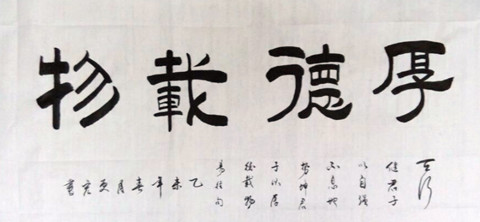 厚德載物
天行
健君子
以自強
不息地
勢坤君
子以厚
德載物
易經句
乙未年春月
書